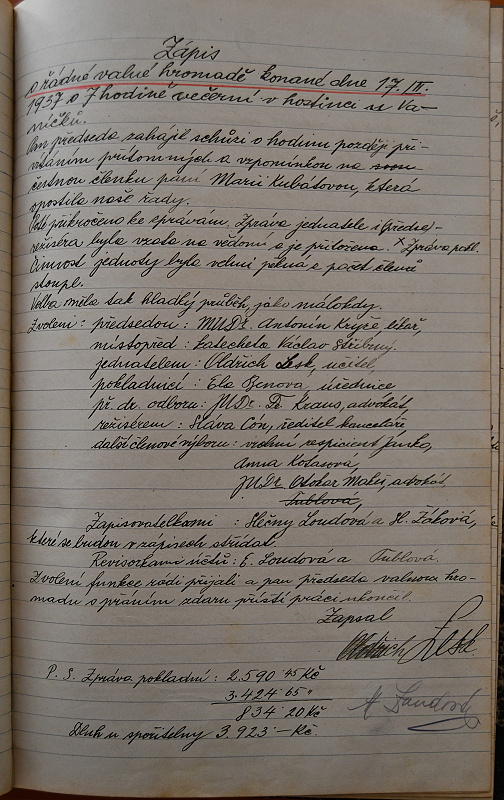 Zápis
o řádné valné hromadě konané dne 17. III.
1937 o 7 hodině večerní v hostinci u Va-
níčků.
Pan předseda zahájil schůzi o hodinu později při-
vítáním přítomných a vzpomínkou na
čestnou členku paní Marii Kubátovou, která
opustila naše řady.
Poté přikročeno ke zprávám. Zpráva jednatele i (předse)-
režiséra byla vzata na vědomí a je přiložena. x Zpráva pokl.
Činnost jednoty byla velmi pěkná a počet členů
stoupl.
Volba měla tak hladký průběh, jako málokdy.
Zvoleni: předsedou: MUDr. Antonín Kryže, lékař,
místopřed: katecheta Václav Stříbrný.
jednatelem: Oldřich Lesk, učitel,
pokladnicí: Ela Benova, úřednice
př. dr. odboru: JUDr. Fr. Kraus, advokát,
režisérem: Sláva Cón, ředitel kanceláře
další členové výboru: vrchní respicient Janko,
Anna Kotasová,
JUDr. Otokar Makeš, advokát,
Tublová,
Zapisovatelkami: Slečny Loudová a H. Žáková,
které se budou v zápisech střídat.
Revisorkami účtů: E. Loudová a Tublová.
Zvolení funkce rádi přijali a pan předseda valnou hro-
madu s přáním zdaru příští práci ukončil.
Zapsal
Oldřich Lesk
P. S. Zpráva pokladní: 2.590 45 Kč
3.424 65 "
834 20 Kč
Dluh u spořitelny 3.923 — Kč.
Loudová